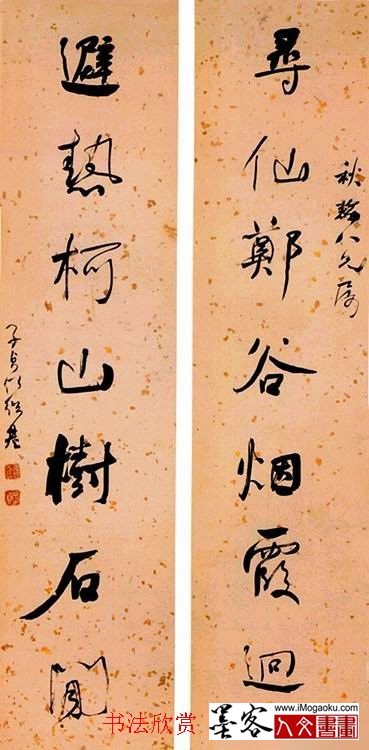 尋仙鄭谷烟霞迥
秋八兄属
避熱柯山樹石閒
子貞何紹基
书法欣赏
墨客
www.iMogaoku.com
人文書畫